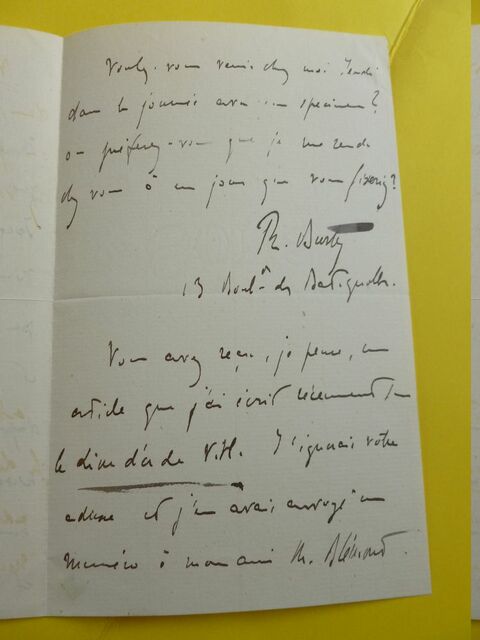 Voulez-vous venir chez moi Jeudi
dans la journée avec un specimen?
ou préférez-vous que je me rende
chez vous à un jour que vous fixeriez?
Ph. Burty
13 Boul.d des Batignolles.
Vous avez reçu, je pense, un
article que j'ai écrit récemment sur
le divan d'été de V.H. J'ignorais votre
adresse et j'en avais envoyé un
numéro à mon ami M. Blémont.